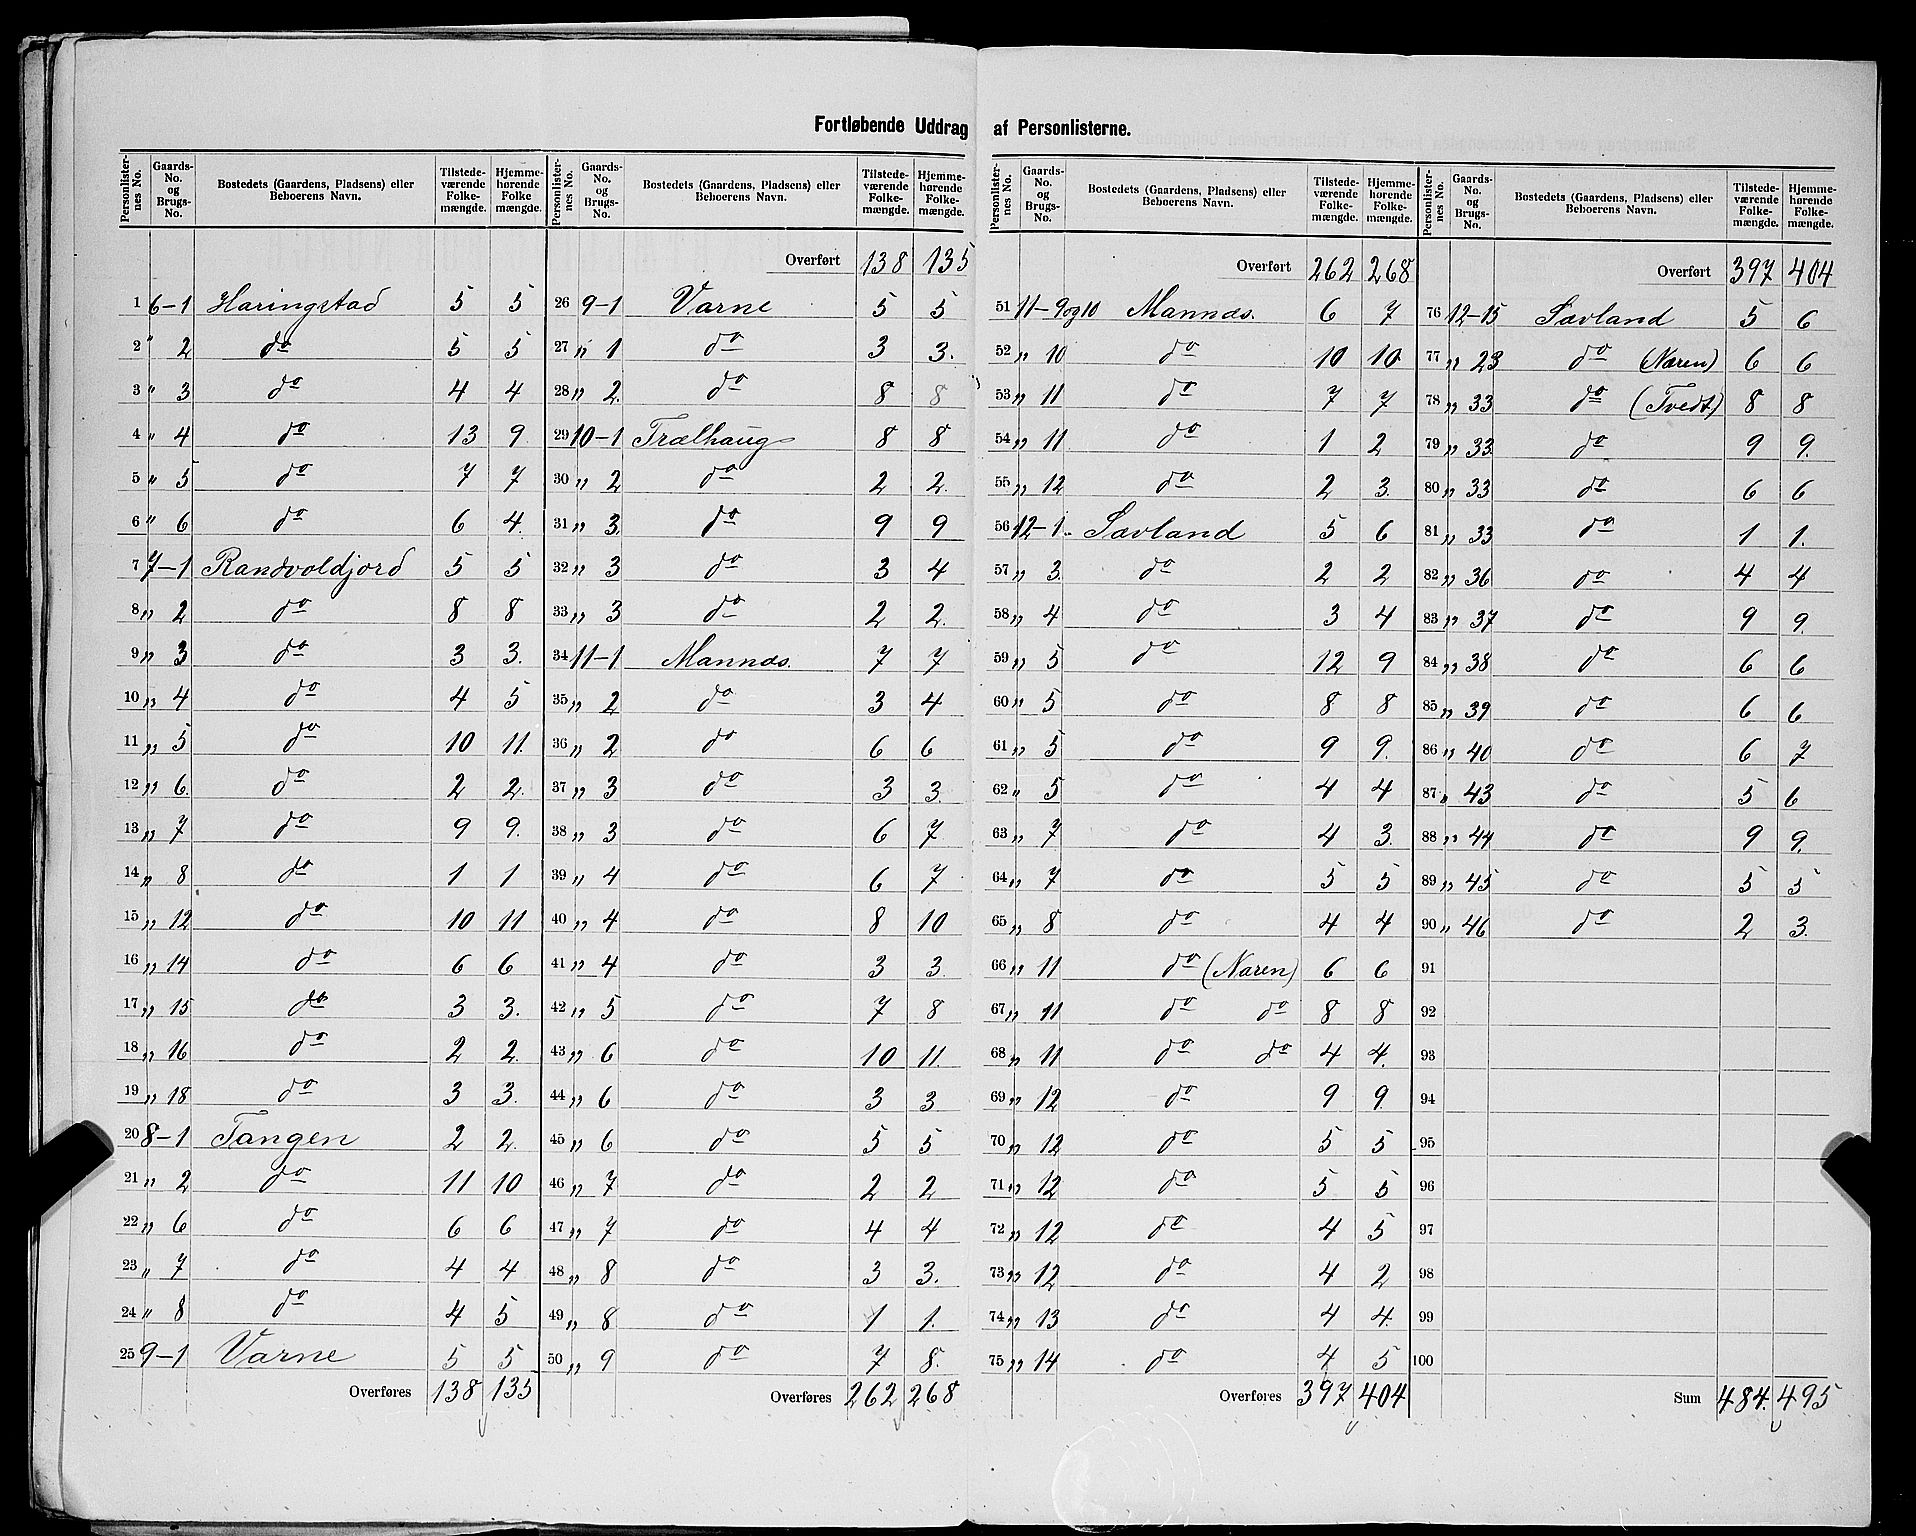 Fortløbende Uddrag af Personlisterne.
Personlister-nes No. | Gaards-No. og Brugs-No. | Bostedets (Gaardens, Pladsens) eller Beboerens Navn. | Tilstede-værende Folke-mængde. | Hjemme-hørende Folke mængde.
1 6-1 Haringstad 5 5
2 " 2 do 5 5
3 " 3 do 4 4
4 " 4 do 13 9
5 " 5 do 7 7
6 " 6 do 6 4.
7 7-1 Randvoldjord 5 5
8 " 2 do 8 8
9 " 3 do 3 3.
10 " 4 do 4 5
11 " 5 do 10 11.
12 " 6. do 2 2.
13 " 7 do 9 9.
14 " 8 do 1 1
15 " 12 do 10 11
16 " 14 do 6 6
17 " 15 do 3 3.
18 " 16 do 2 2.
19 " 18 do 3 3.
20 8-1 Tangen 2 2.
21 " 2 do 11 10
22 " 6 do 6 6
23 " 7 do 4 4
24 " 8 do 4 5
25 9-1 Varne 5 5
Overføres 138 135
Personlister-nes No. | Gaards-No. og Brugs-No. | Bostedets (Gaardens, Pladsens) eller Beboerens Navn. | Tilstede-værende Folke-mængde. | Hjemme-hørende Folke-mængde.
Overført 138 135
26 9-1 Varne 5 5
27 " 1 do 3 3.
28 " 2. do 8 8
29 10-1 Trælhaug 8 8
30 " 2 do 2 2.
31 " 3. do 9 9
32 " 3 do 3 4
33 " 3 do 2 2.
34 11-1 Mannæs. 7 7
35 " 2 do 3 4
36 " 2 do 6 6
37 " 3 do 3 3.
38 " 3 do 6 7
39 " 4 do 6 7
40 " 4 do 8 10
41 " 4 do 3 3.
42 " 5 do 7 8
43 " 6 do 10 11.
44 " 6 do 3 3
45 " 6 do 5 5
46 " 7 do 2 2
47 " 7 do 4 4
48 " 8 do 3 3.
49 " 8 do 1 1.
50 " 9 do 7 8.
Overføres 262 268
Personlister-nes No. | Gaards-No. og Brugs-No. | Bostedets (Gaardens, Pladsens) eller Beboerens Navn. | Tilstede-værende Folke-mængde. | Hjemme-hørende Folke-mængde.
Overført 262 268
51 11-9og10 Mannæs. 6 7
52 " 10 do 10 10
53 " 11 do 7 7
54 " 11. do 1 2
55 " 12 do 2 3.
56 12-1 Sævland 5 6
57 " 3. do 2 2
58 " 4 do 3 4
59 " 5 do 12 9
60 " 5 do 8 8
61 " 5 do 9 9.
62 " 5 do 4 4
63 " 7 do 4 3.
64 " 7 do 5 5
65 " 8 do 4 4
66 " 11 do (Næren) 6 6
67 " 11 do do 8 8
68 " 11 do do 4 4.
69 " 12 do 9 9.
70 " 12 do 5 5
71 " 12 do 5 5
72 " 12 do 4 5
73 " 12 do 4 2
74 " 13 do 4 4.
75 " 14 do 4 5
Overføres 397 404
Personlister-nes No. | Gaards-No. og Brugs-No. | Bostedets (Gaardens, Pladsens) eller Beboerens Navn. | Tilstede-værende Folke-mængde. | Hjemme-hørende Folke-mængde.
Overført 397 404
76 12-15 Sævland 5 6
77 " 23 do (Næren) 6 6
78 " 33 do (Tvedt) 8 8
79 " 33. do 9 9.
80 " 33 do 6 6
81 " 33 do 1 1.
82 " 36 do 4 4
83 " 37 do 9 9.
84 " 38 do 6 6
85 " 39 do 6 6
86 " 40 do 6 7
87 " 43 do 5 6
88 " 44 do 9 9.
89 " 45 do 5 5
90 " 46 do 2 3.
91
92
93
94
95
96
97
98
99
100
Sum 484. 495